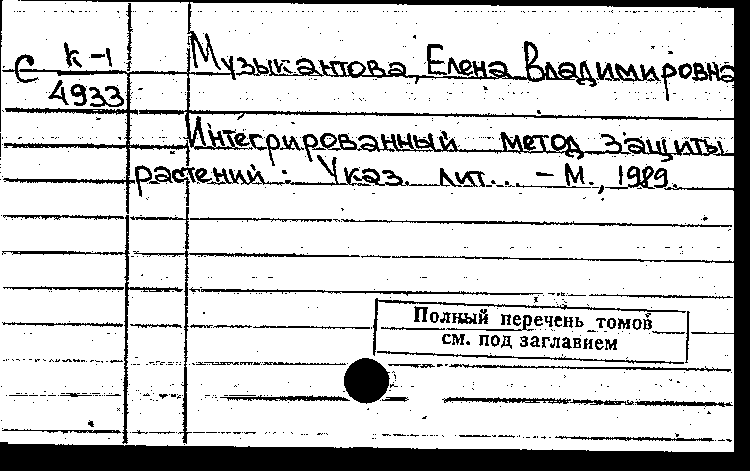 Є К-1
4933
Музыкантова, Елена Владимировна
Интегрированный метод защиты
растений: Указ. лит... – М., 1989.
Полный перечень томов
см. под заглавием